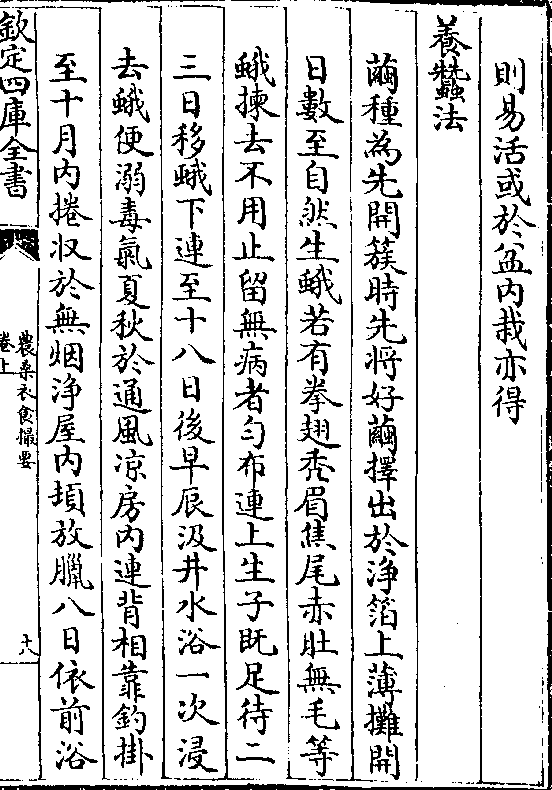 則易活或於盆内栽亦得
養蠶法
繭種為先開簇時先將好繭擇出於浄箔上薄攤開
日數至自然生蛾若有拳翅秃眉焦尾赤肚無毛等
蛾揀去不用止留無病者勻布連上生子既足待二
三日移蛾下連至十八日後早辰汲井水浴一次浸
去蛾便溺毒氣夏秋於通風凉房内連背相靠釣掛
至十月内捲収於無烟浄屋内頓放臘八日依前浴
欽定四庫全書
農桑衣食撮要
卷上
十八